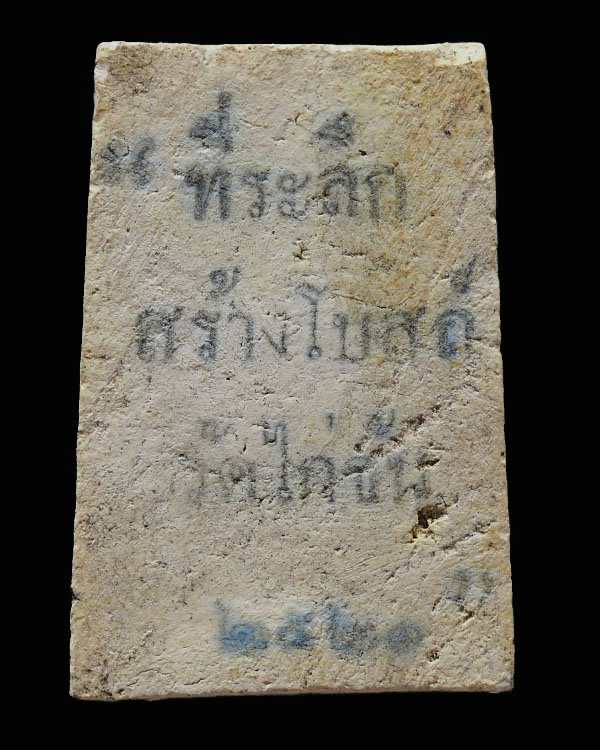 “ ที่ระลึก
สร้างโบสถ์
วัดไก่จ้น
”
๒๕๒๑